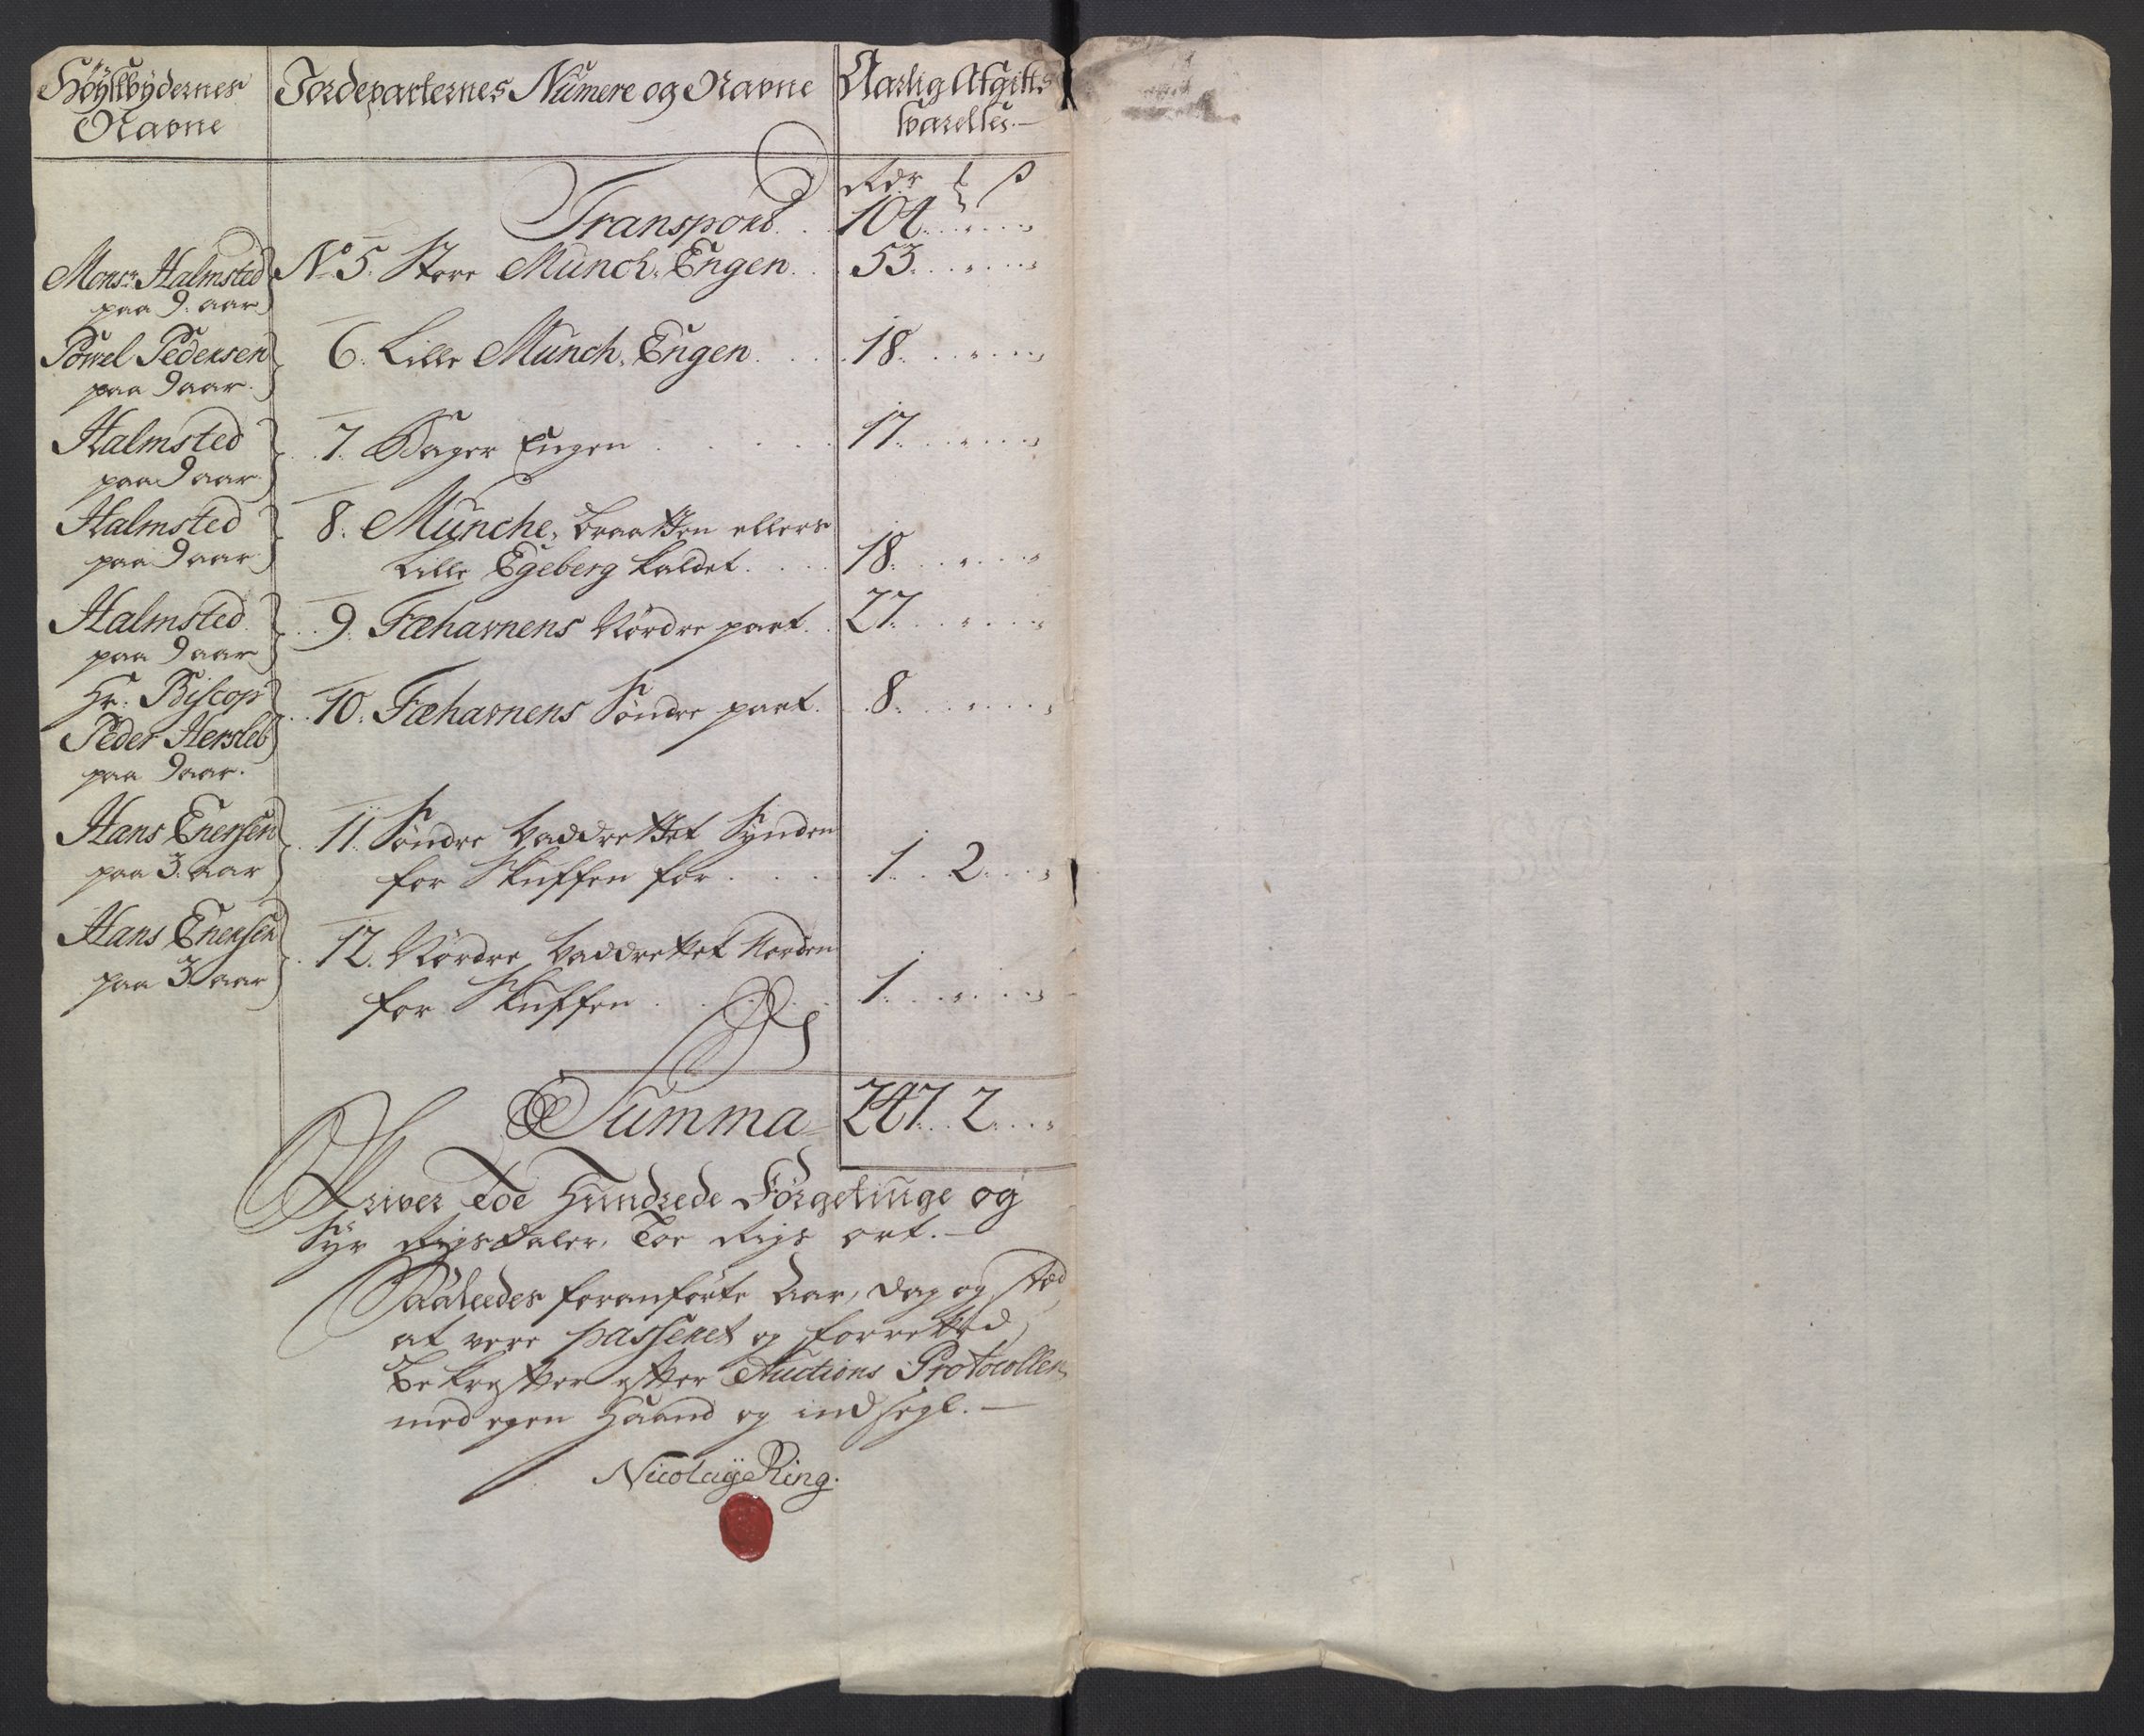 Höÿstbÿdernes Navne
Jordeparternes Numere og Navne
Aarlig Afgifts Svarelses.
Rdr ß
Transport . . 104 . . .
Monsr. Halmsted paa 9. aar
No 5. Store Munch-Engen . . 53 . . .
Powel Pedersen paa 9 aar.
6. Lille Munch-Engen . . . 18 . . .
Halmsted paa 9 aar
7. Bager Engen . . . . 17 . . .
Halmsted paa 9 aar
8. Munche-braatten ellers
Lille Egeberg kaldet . . . 18 . . .
Halmsted paa 9 aar
9. Fæhavnens Nordre part . . 27 . . .
Hr. Biscop Peder Hersleb paa 9 aar.
10. Fæhavnens Søndre part . . 8 . . .
Hans Enersen paa 3. aar
11. Søndre Vaddrettet Synden
for Skuffen for . . . . 1 . . 2 . . .
Hans Enersen paa 3 aar
12. Nordre Vaddrettet Norden
for Skuffen . . . . 1 . . .
Summa 247 . . 2 . . .
Skriver Toe Hundrede Förgetiuge og
Syv Rigsdaler, Toe Rigs ort.
Saaleedes foranförte Aar, Dag og Stæd
at vere passeret og forretted,
bekrefter efter Auctions Protocollen
med egen Haand og indsegl.
Nicolaÿ Ring.